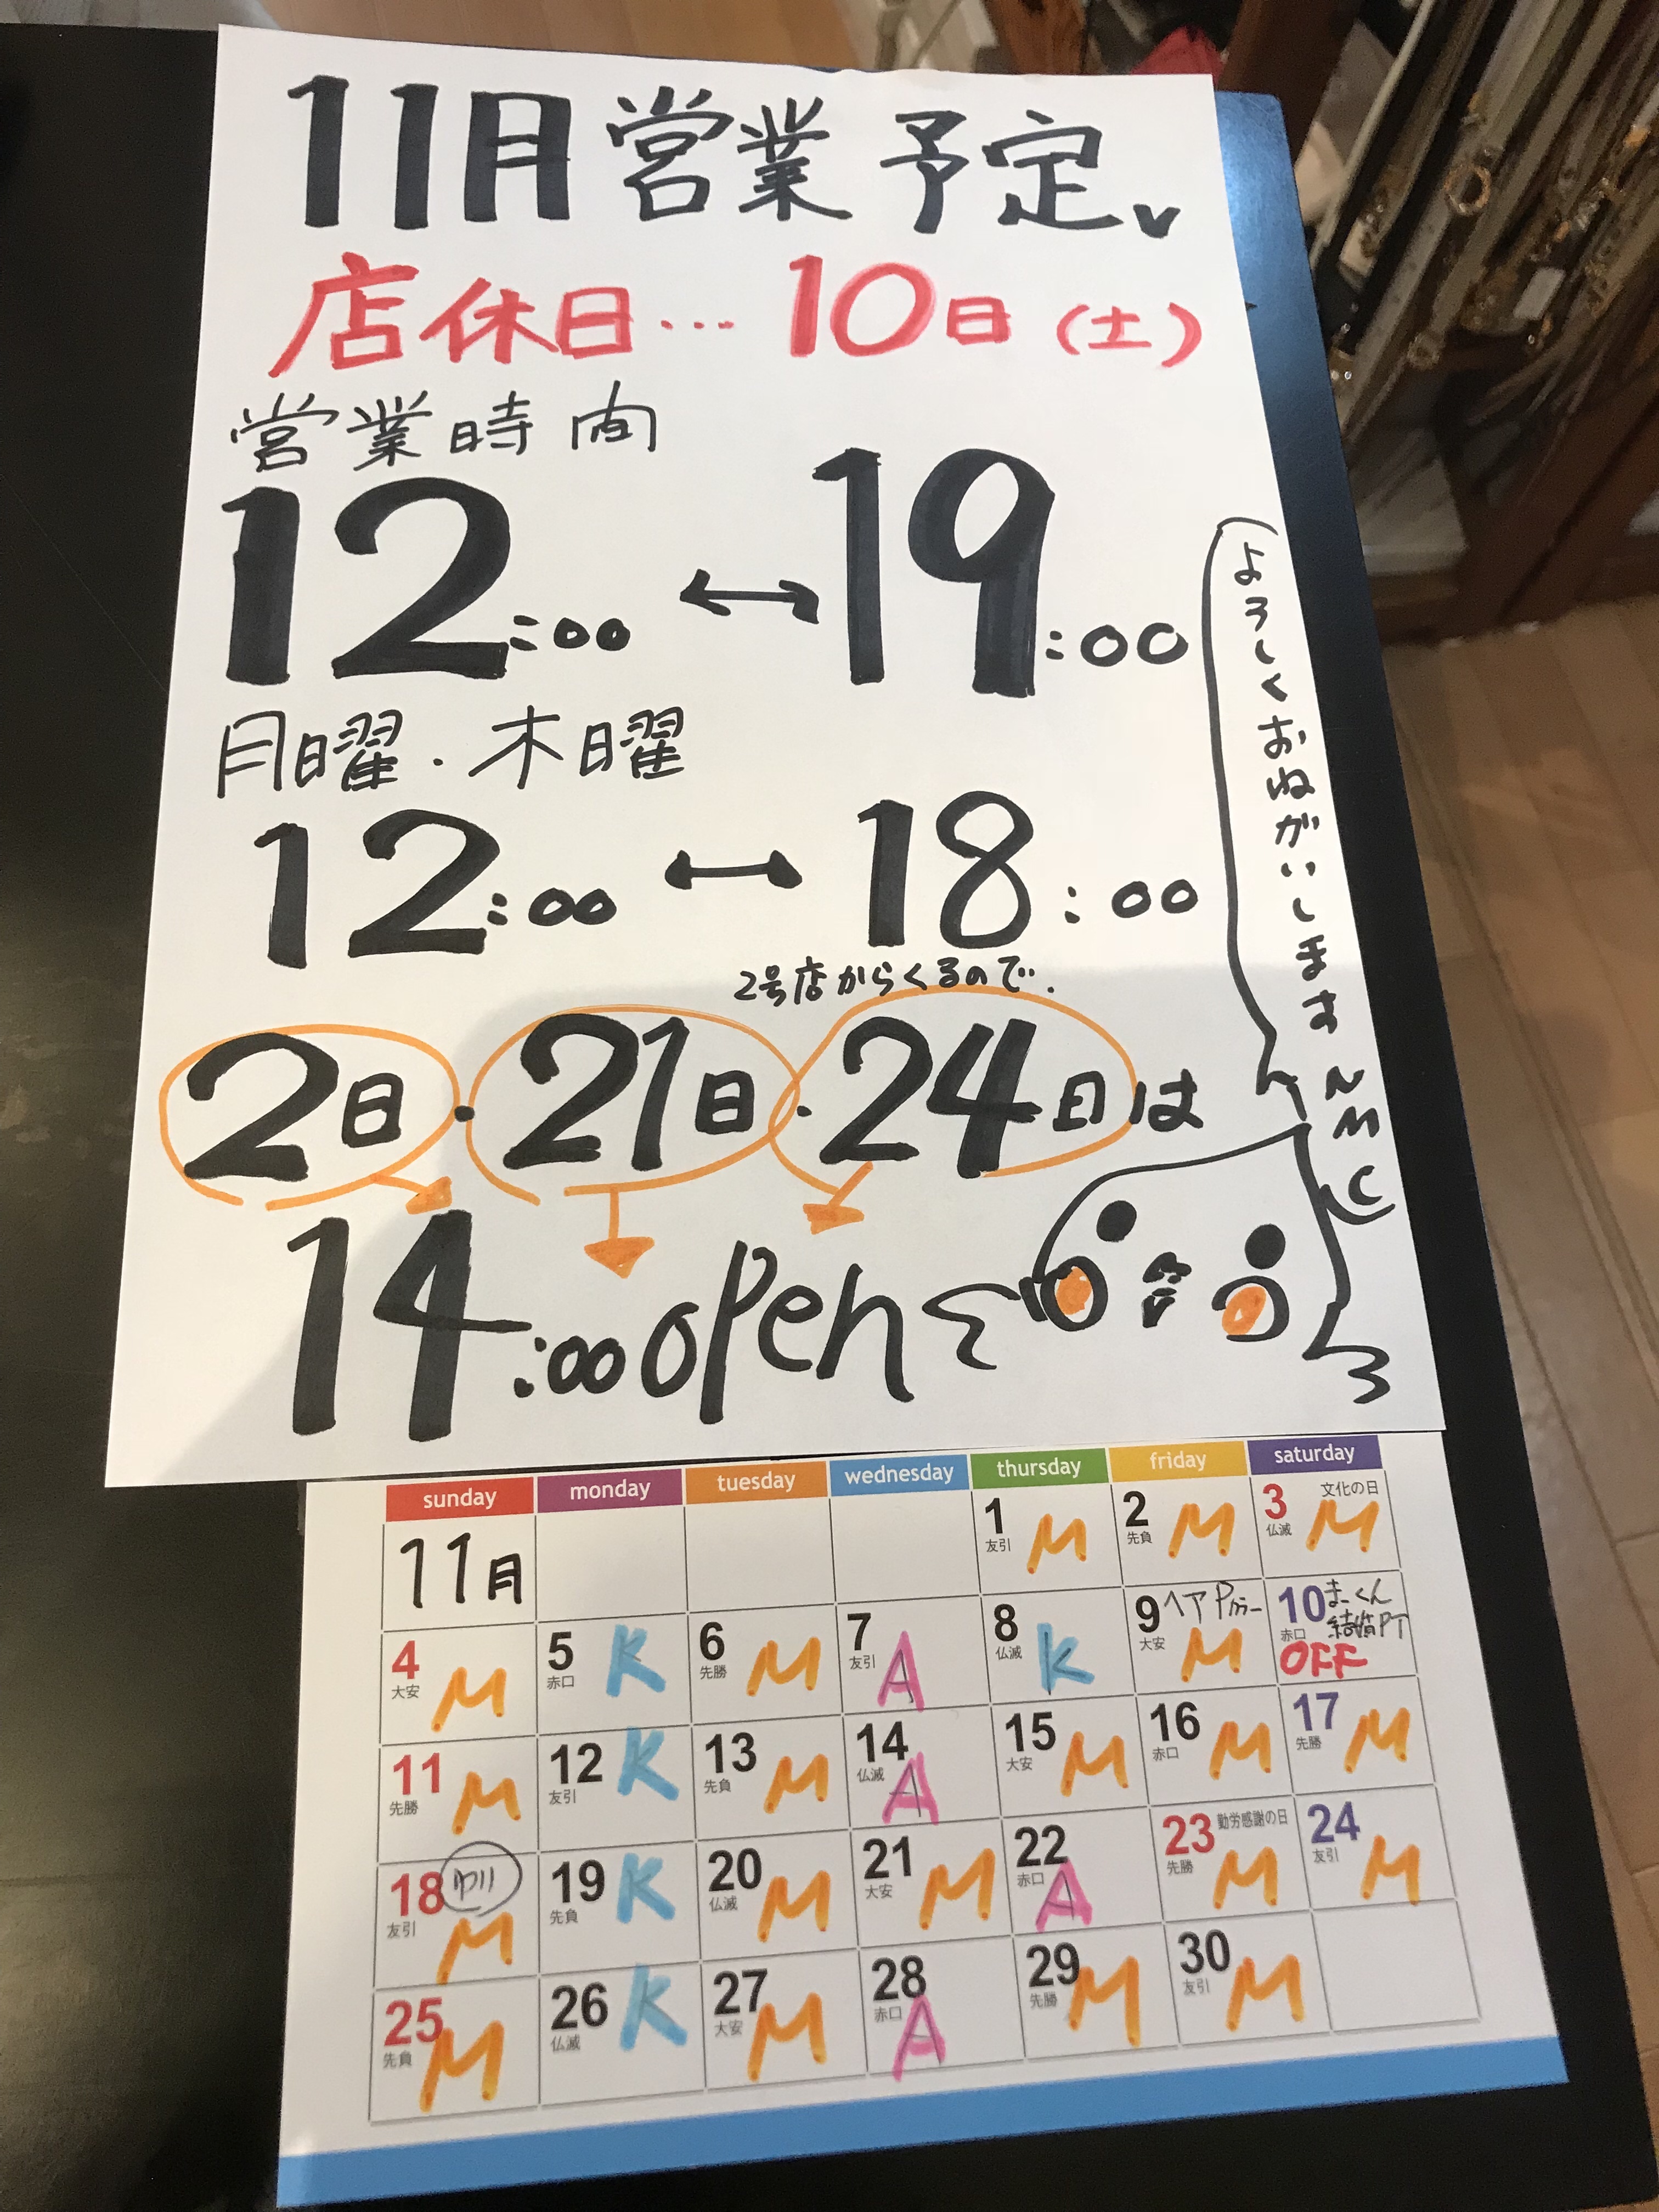 11月営業予定
店休日…10日(土)
営業時間
12:00 ↔ 19:00
月曜・木曜
12:00 ↔ 18:00
2号店からくるので.
2日・21日・24日は
14:00 open
よろしくおねがいします
sunday monday tuesday wednesday thursday friday saturday
11月
1 友引 M
2 先負 M
3 文化の日 仏滅 M
4 大安 M
5 赤口 K
6 先勝 M
7 友引 A
8 仏滅 K
9 大安 M
10 赤口 まーくん 結婚PT OFF
11 先勝 M
12 友引 K
13 先負 M
14 仏滅 A
15 大安 M
16 赤口 M
17 先勝 M
18 友引 M
19 先負 K
20 仏滅 M
21 大安 M
22 赤口 A
23 勤労感謝の日 先勝 M
24 友引 M
25 先負 M
26 仏滅 K
27 大安 M
28 赤口 A
29 先勝 M
30 友引 M